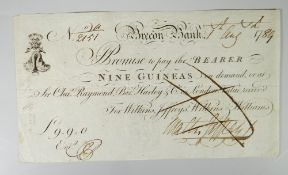 No. 2151 Brecon Bank, Aug 1789
Promise to pay the BEARER
NINE GUINEAS on demand, or at
Sir Chas. Raymond, Bar. Harley & Co. London Value received
For Wilkins Jeffreys Wilkins & Williams
£9.9.0
Entd.